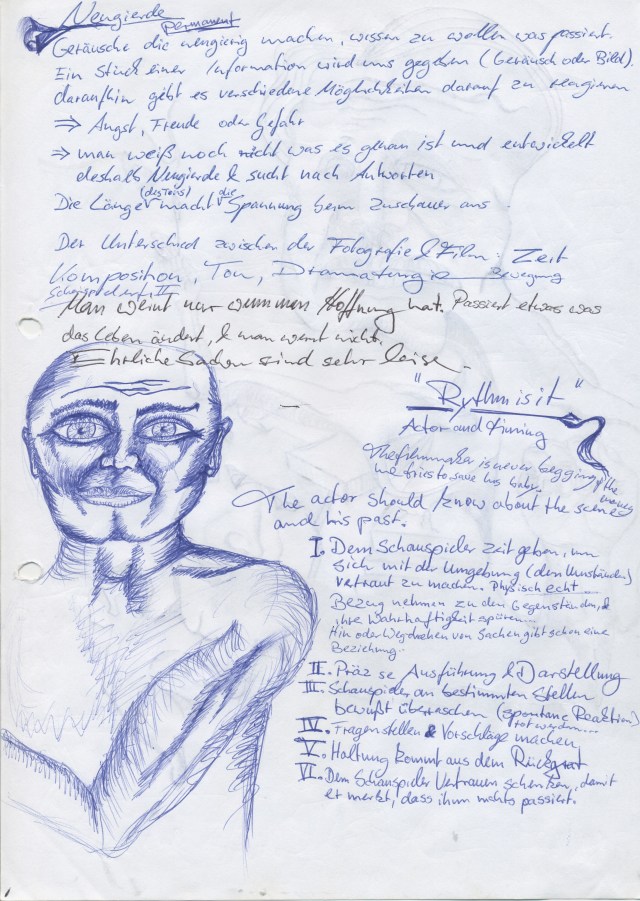 Neugierde
permanent
Geräusche die neugierig machen, wissen zu wollen was passiert.
Ein Stück einer Information wird uns gegeben (Geräusch oder Bild).
daraufhin gibt es verschiedene Möglichkeiten darauf zu reagieren
⇒ Angst, Freude oder Gefahr
⇒ man weiß noch nicht was es genau ist und entwickelt
deshalb Neugierde & sucht nach Antworten
(des Tons) die
Die Länge macht Spannung beim Zuschauer aus.
Der Unterschied zwischen der Fotografie & Film: Zeit
Komposition, Ton, Dramaturgie Bewegung
Man weint nur wenn man Hoffnung hat. Passiert etwas was
das Leben ändert, & man weint nicht.
Ehrliche Sachen sind sehr leise.
"Rythm is it"
Actor and timing
The filmmaker is never begging 4 the money
he tries to save his baby..
The actor should know about the scene
and his past.
I. Dem Schauspieler Zeit geben, um
sich mit der Umgebung (den Umständen)
vertraut zu machen. Physisch echt...
Bezug nehmen zu den Gegenständen, &
ihre Wahrhaftigkeit spüren...
Hin oder Wegdrehen von Sachen gibt schon eine
Beziehung..
II. Präzise Ausführung & Darstellung
III. Schauspieler an bestimmten Stellen
bewußt überraschen (spontane Reaktion)
rot werden....
IV. Fragen stellen & Vorschläge machen
V. Haltung kommt aus dem Rückgrat
VI. Dem Schauspieler Vertrauen schenken, damit
er merkt, dass ihm nichts passiert.